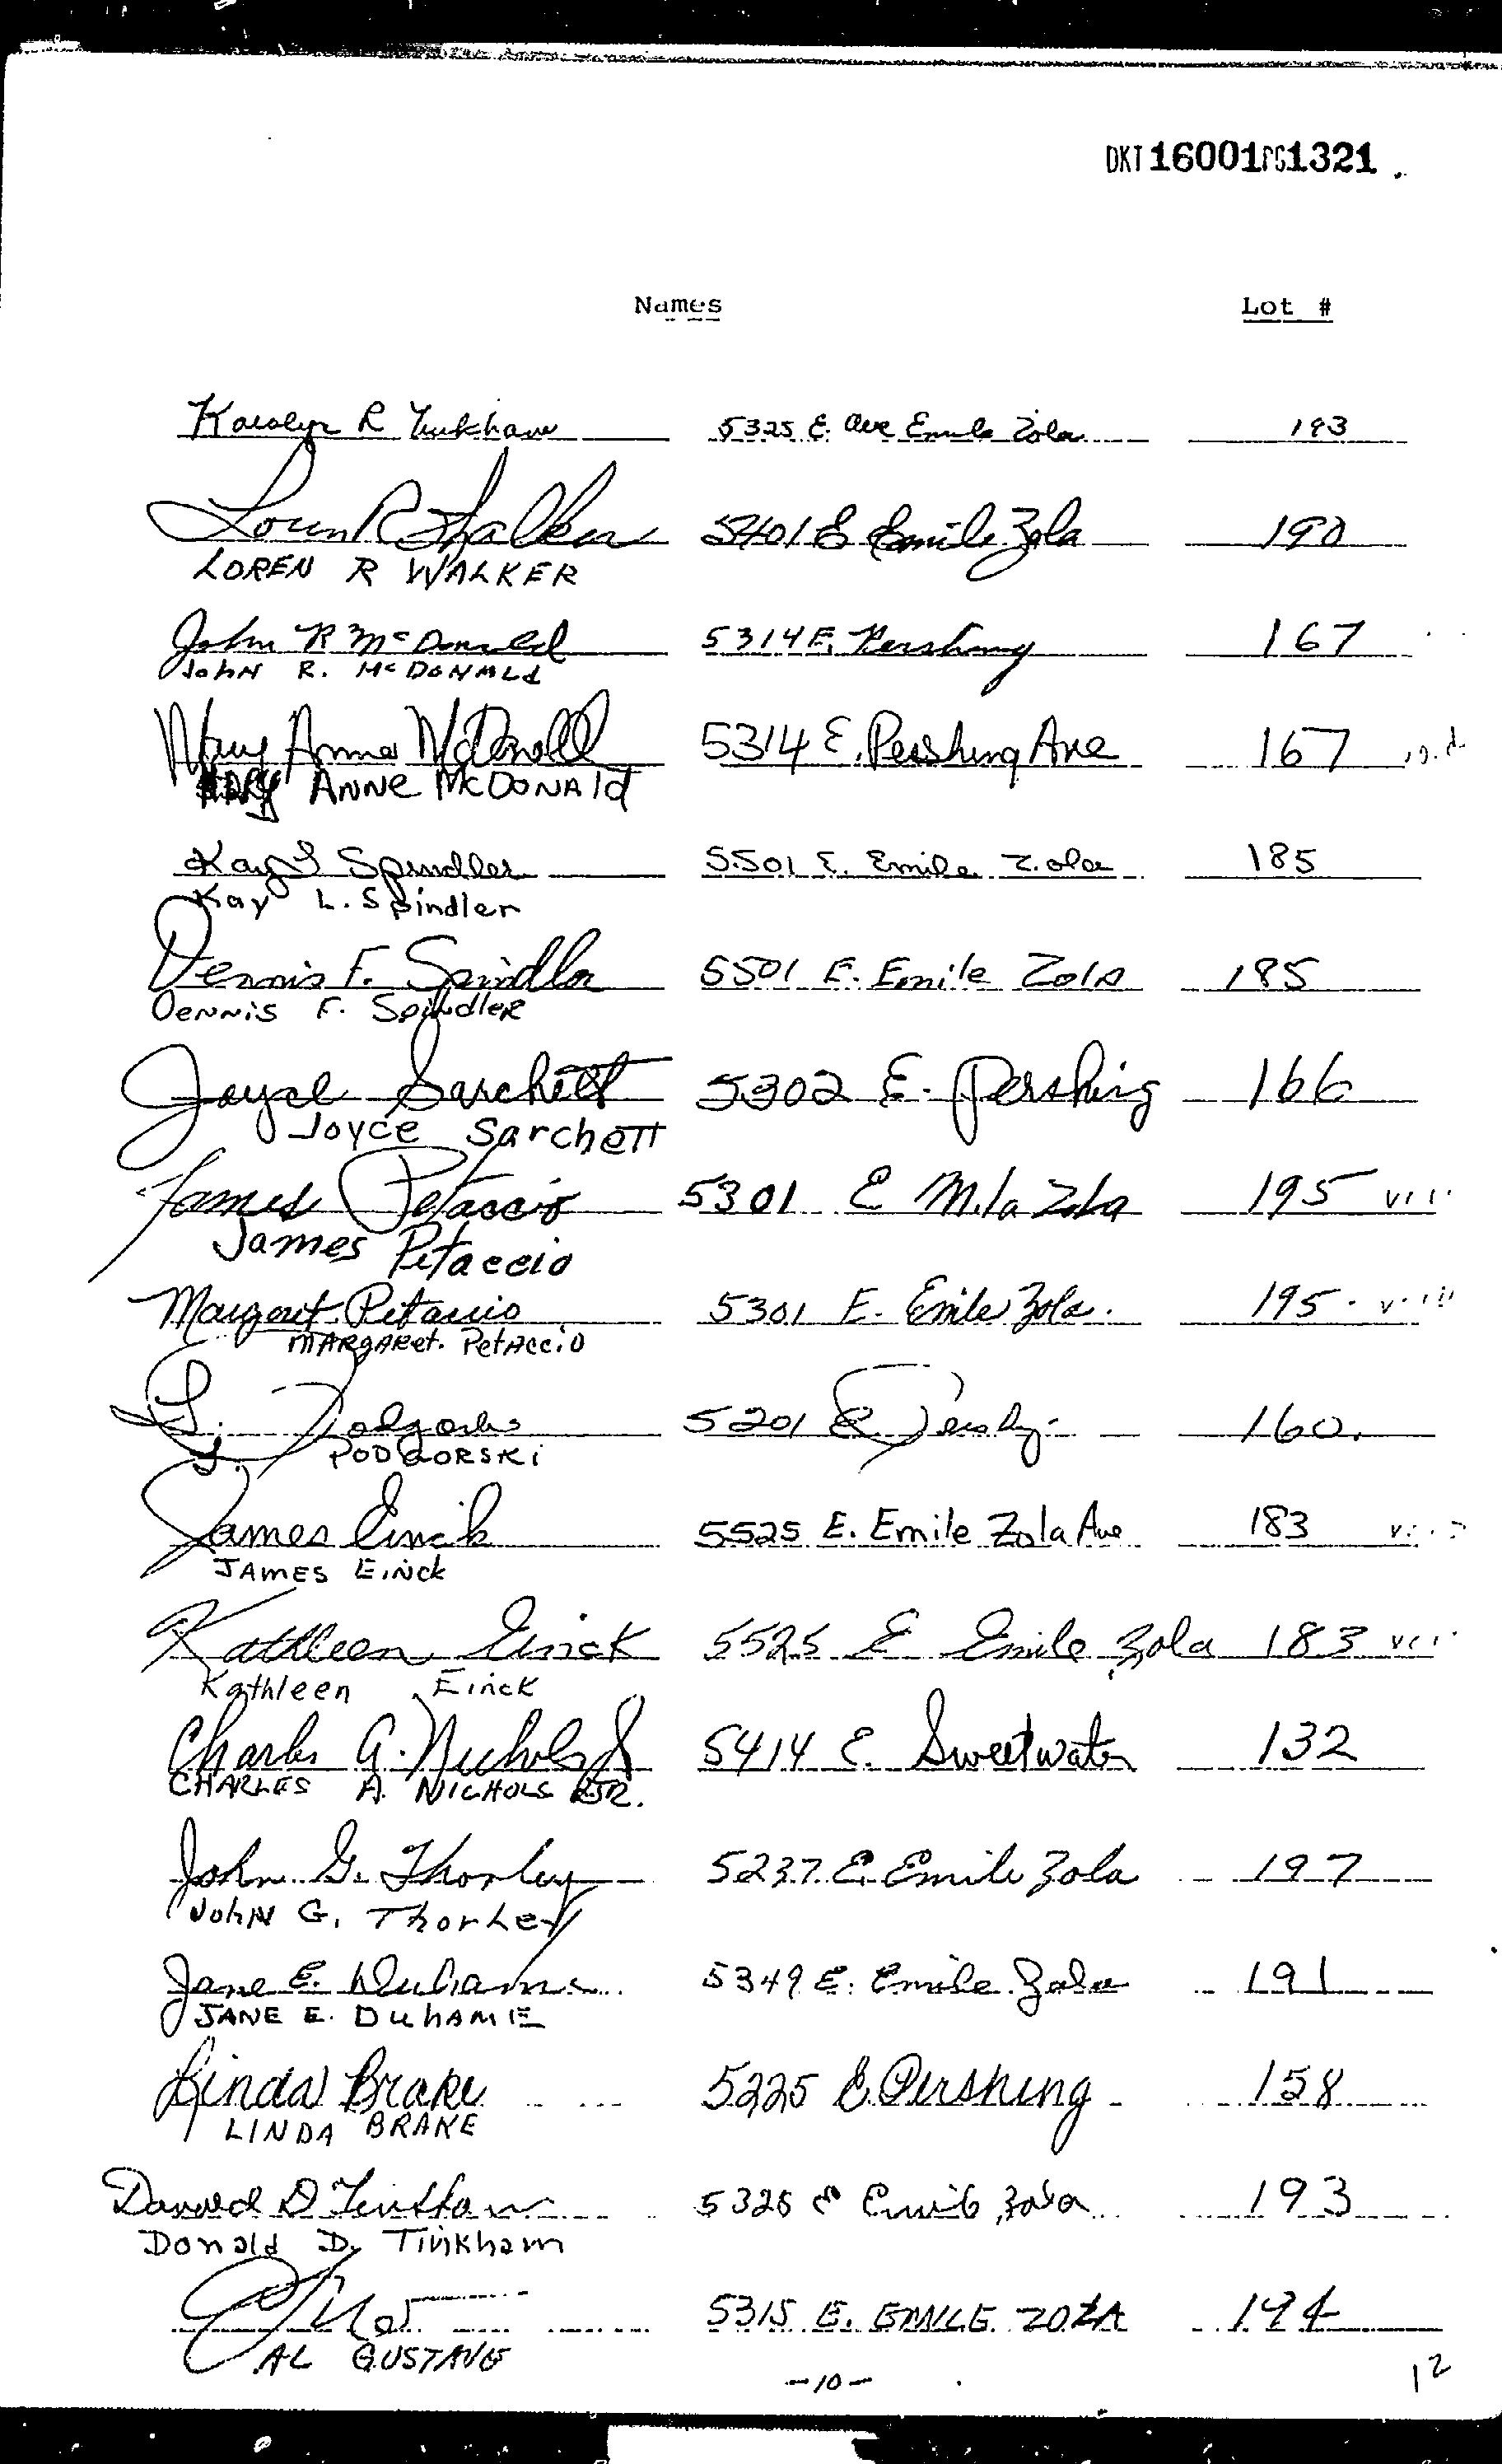 DKT 16001 PG 1321
Names Lot #
Karolyn R Tinkham 5325 E. Ave Emile Zola 193
Loren R Walker 5401 E Emile Zola 190
LOREN R WALKER
John R McDonald 5314 E. Pershing 167
JohN R. McDONALd
Mary Anne McDonald 5314 E. Pershing Ave 167
MARY ANNe McDONAld
Kay L Spindler 5501 E. Emile Zola 185
Kay L. Spindler
Dennis F. Spindler 5501 E. Emile Zola 185
DeNNiS F. SpiNdleR
Joyce Sarchett 5302 E. Pershing 166
Joyce SarcheTT
James Petaccio 5301 E Mila Zola 195
James Petaccio
Margaret Petaccio 5301 E. Emile Zola. 195
MARgARet. PetAcciO
Podgorski 5201 E Pershing 160.
PODGORSKi
James Einck 5525 E. Emile Zola Ave 183
JAMES EiNck
Kathleen Einck 5525 E Emile Zola 183
Kathleen Einck
Charles A. Nichols Jr 5414 E. Sweetwater 132
CHARLES A. NICHOLS JR.
John G. Thorley 5237 E. Emile Zola 197
JohN G. ThorLey
Jane E. Duhame 5349 E. Emile Zola 191
JANE E. DUhAME
Linda Brake 5225 E. Pershing 158
LINDA BRAKE
Donald D Tinkham 5325 E Emile Zola 193
Donald D. Tinkham
5315 E. EMILE ZOLA 194
AL GUSTAVE
-10-
12